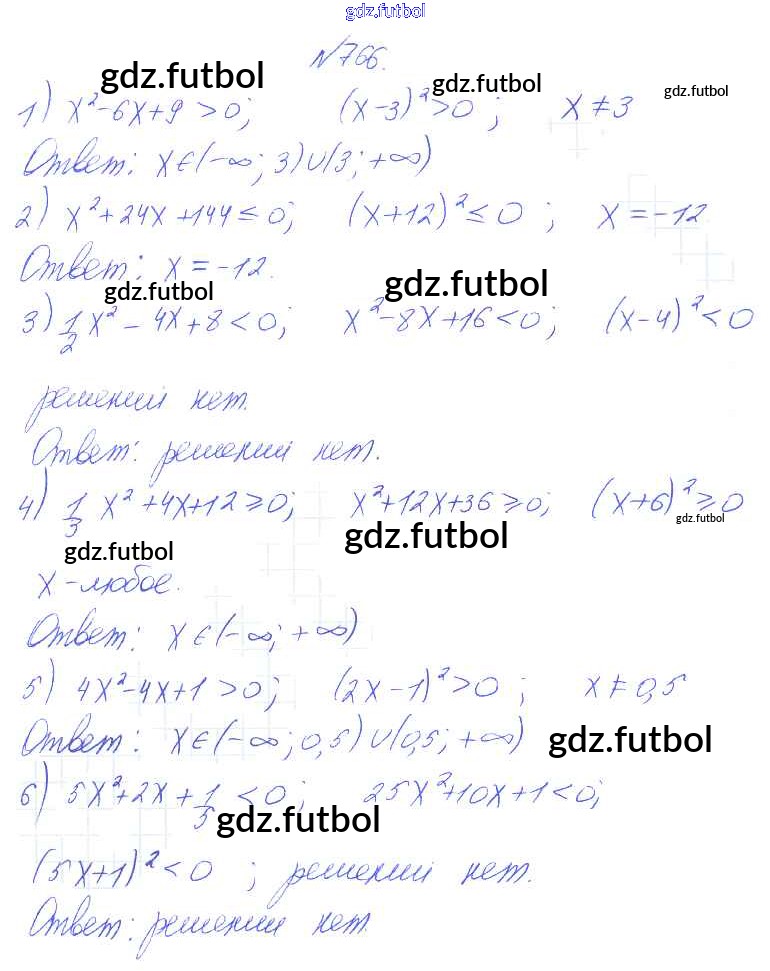 gdz.futbol
№766.
gdz.futbol gdz.futbol gdz.futbol
1) x²-6x+9>0; (x-3)²>0; x≠3
Ответ: x∈(-∞; 3)∪(3; +∞)
2) x²+24x+144≤0; (x+12)²≤0; x=-12
Ответ: x=-12.
gdz.futbol gdz.futbol
3) 1/2 x²-4x+8<0; x²-8x+16<0; (x-4)²<0
решений нет.
Ответ: решений нет.
4) 1/3 x²+4x+12≥0; x²+12x+36≥0; (x+6)²≥0
gdz.futbol gdz.futbol gdz.futbol
x-любое.
Ответ: x∈(-∞; +∞)
5) 4x²-4x+1>0; (2x-1)²>0; x≠0,5
Ответ: x∈(-∞; 0,5)∪(0,5; +∞) gdz.futbol
6) 5x²+2x+1/5<0; 25x²+10x+1<0;
gdz.futbol
(5x+1)²<0; решений нет.
Ответ: решений нет.